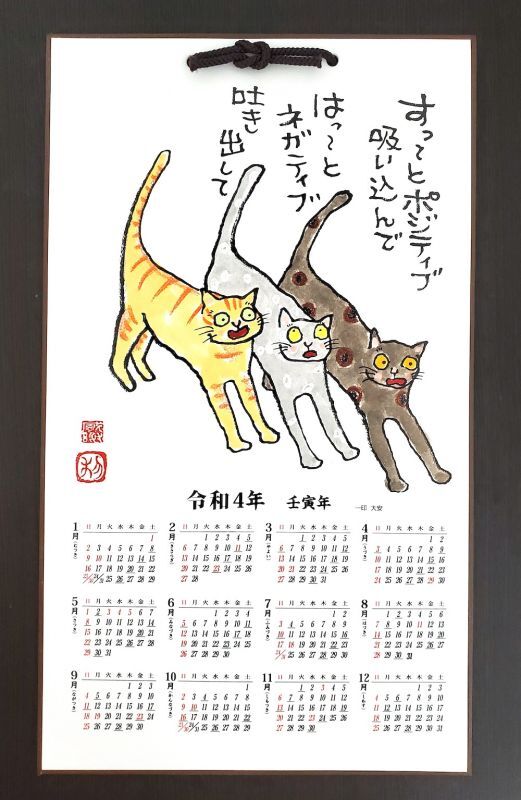 すっ〜とポジティブ
吸い込んで
はっ〜と
ネガティブ
吐き
出して
令和4年 壬寅年
一印 大安
1月
日 月 火 水 木 金 土
1
2 3 4 5 6 7 8
9 10 11 12 13 14 15
16 17 18 19 20 21 22
23/30 24/31 25 26 27 28 29
2月
日 月 火 水 木 金 土
1 2 3 4 5
6 7 8 9 10 11 12
13 14 15 16 17 18 19
20 21 22 23 24 25 26
27 28
3月
日 月 火 水 木 金 土
1 2 3 4 5
6 7 8 9 10 11 12
13 14 15 16 17 18 19
20 21 22 23 24 25 26
27 28 29 30 31
4月
日 月 火 水 木 金 土
1 2
3 4 5 6 7 8 9
10 11 12 13 14 15 16
17 18 19 20 21 22 23
24 25 26 27 28 29 30
5月
日 月 火 水 木 金 土
1 2 3 4 5 6 7
8 9 10 11 12 13 14
15 16 17 18 19 20 21
22 23 24 25 26 27 28
29 30 31
6月
日 月 火 水 木 金 土
1 2 3 4
5 6 7 8 9 10 11
12 13 14 15 16 17 18
19 20 21 22 23 24 25
26 27 28 29 30
7月
日 月 火 水 木 金 土
1 2
3 4 5 6 7 8 9
10 11 12 13 14 15 16
17 18 19 20 21 22 23
24/31 25 26 27 28 29 30
8月
日 月 火 水 木 金 土
1 2 3 4 5 6
7 8 9 10 11 12 13
14 15 16 17 18 19 20
21 22 23 24 25 26 27
28 29 30 31
9月
日 月 火 水 木 金 土
1 2 3
4 5 6 7 8 9 10
11 12 13 14 15 16 17
18 19 20 21 22 23 24
25 26 27 28 29 30
10月
日 月 火 水 木 金 土
1
2 3 4 5 6 7 8
9 10 11 12 13 14 15
16 17 18 19 20 21 22
23/30 24/31 25 26 27 28 29
11月
日 月 火 水 木 金 土
1 2 3 4 5
6 7 8 9 10 11 12
13 14 15 16 17 18 19
20 21 22 23 24 25 26
27 28 29 30
12月
日 月 火 水 木 金 土
1 2 3
4 5 6 7 8 9 10
11 12 13 14 15 16 17
18 19 20 21 22 23 24
25 26 27 28 29 30 31